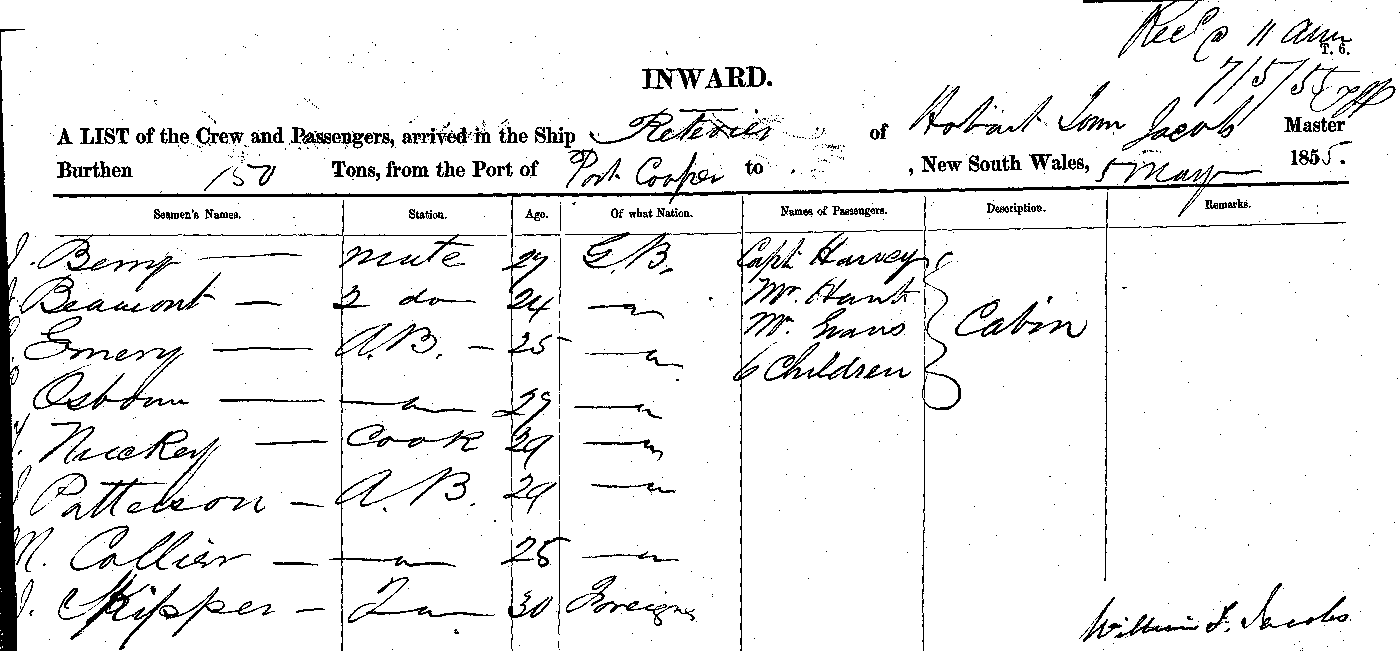 Rec'd @ 11 am
T. 6.
7/5/55
INWARD.
A LIST of the Crew and Passengers, arrived in the Ship Retriever of Hobart Town Jacobs Master
Burthen 150 Tons, from the Port of Port Cooper to , New South Wales, 5 May 1855.
Seamen's Names. Station. Age. Of what Nation. Names of Passengers. Description. Remarks.
J. Berry — Mate 27 G.B. Capt. Harvey
Beaumont — 2 do 24 — " Mr. Hunt
Emery — A.B. — 25 — " Mr. Evans Cabin
Osborn — — " — 29 — " 6 Children
Nuckey — Cook 29 — "
J Patterson — A.B. 29 — "
M. Collier — — " — 25 — "
J. Skipper — 30 Foreigner
William F. Jacobs